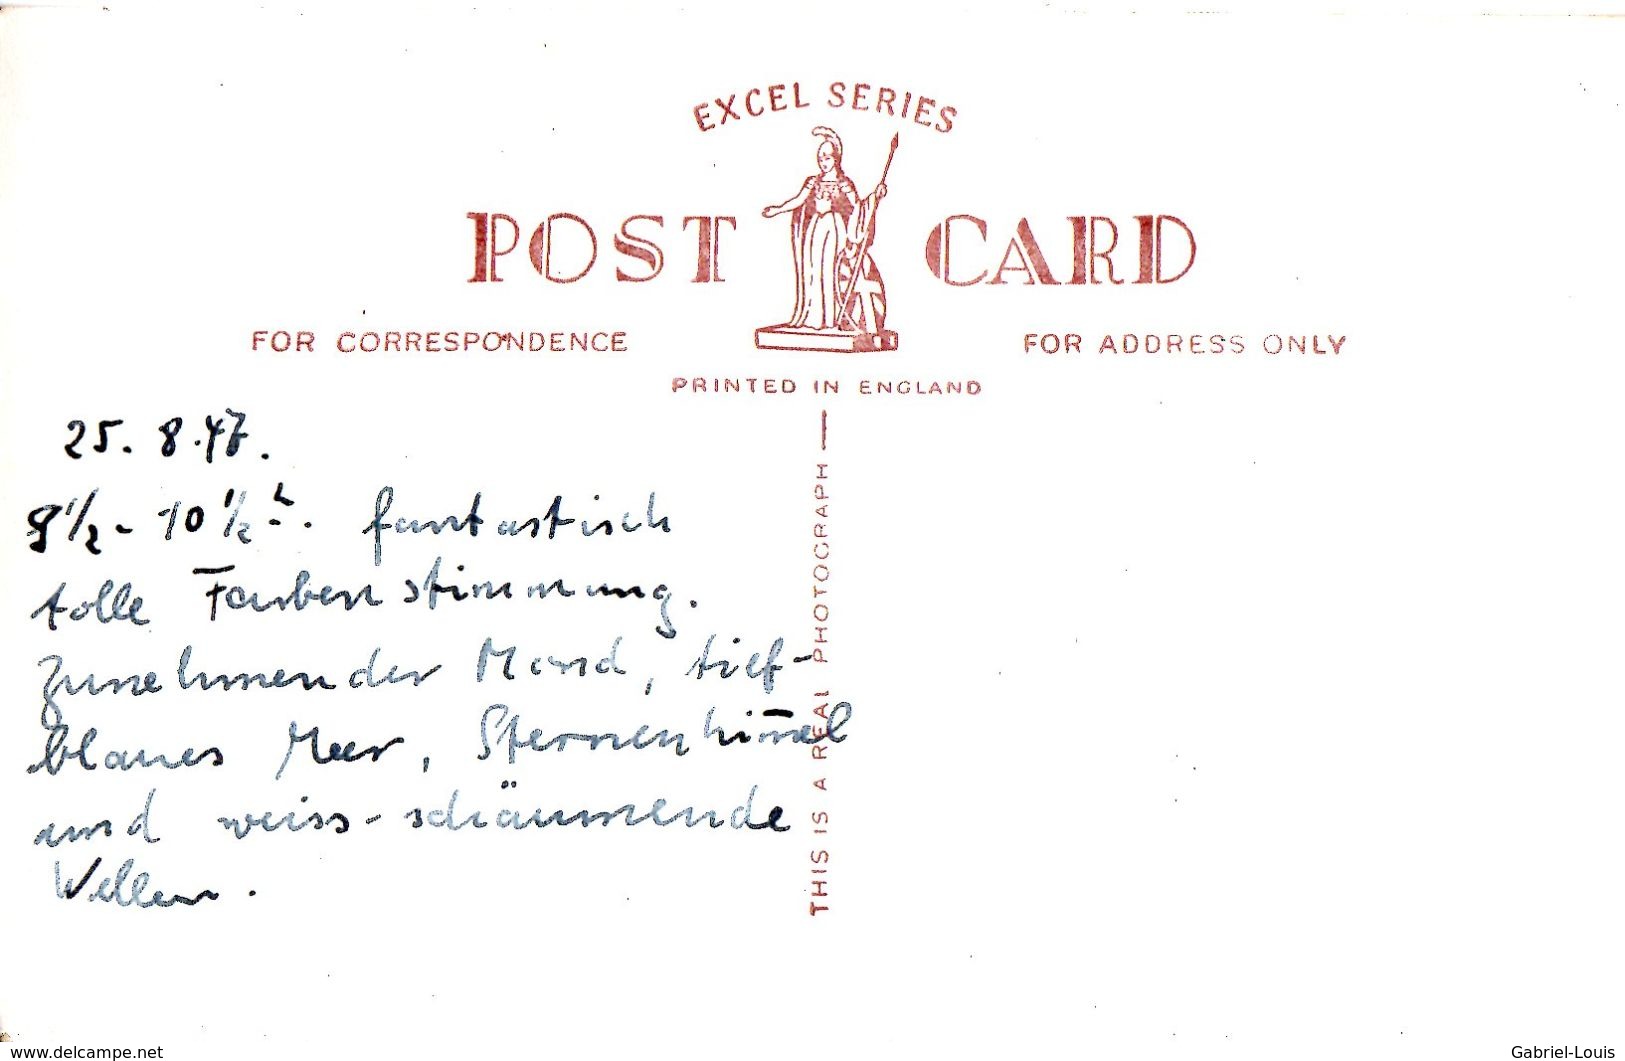 EXCEL SERIES
POST CARD
FOR CORRESPONDENCE
FOR ADDRESS ONLY
PRINTED IN ENGLAND
THIS IS A REAL PHOTOGRAPH
25. 8. 47.
9½ - 10½ h. fantastisch
tolle Farbenstimmung.
Zunehmender Mond, tief-
blaues Meer, Sternenhim̅el
und weiss-schäumende
Wellen.
www.delcampe.net
Gabriel-Louis